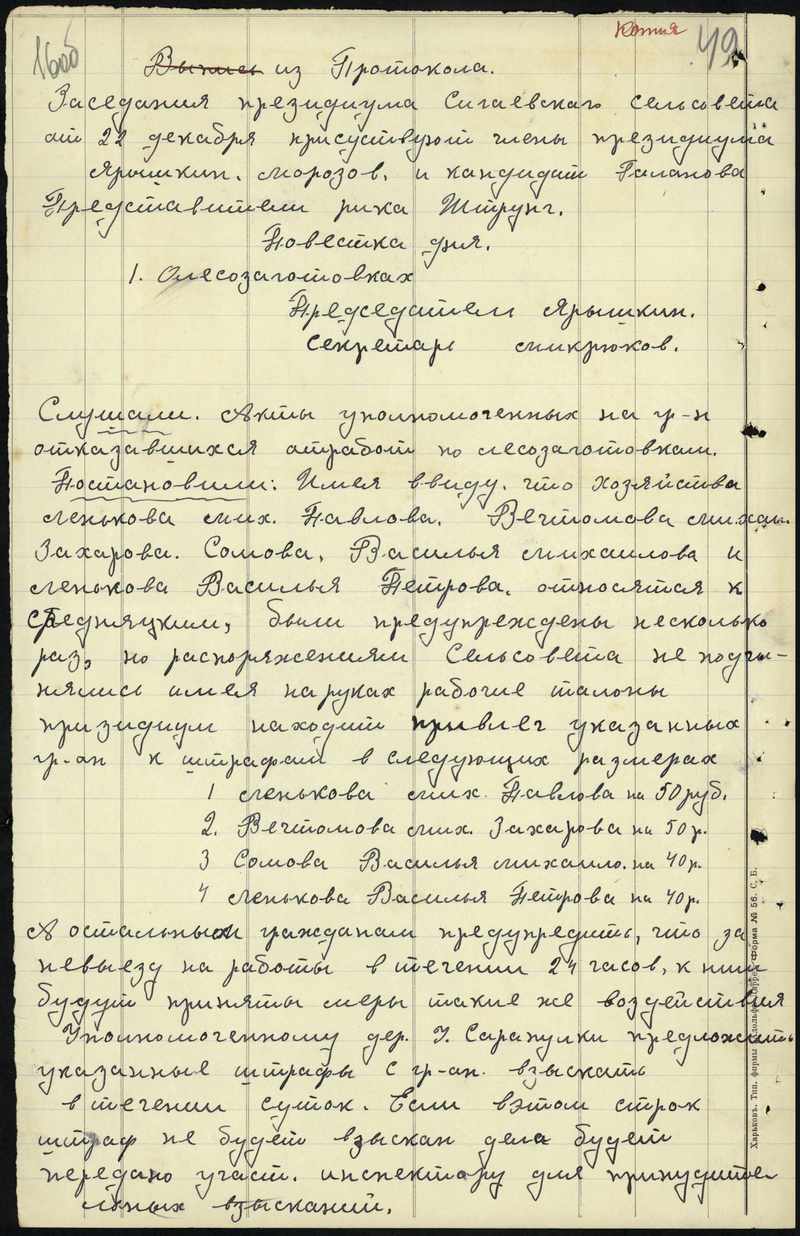 160б
Копия
49
Выпись из Протокола.
Заседания президиума Сигаевскаго сельсовета
от 22 декабря присуствуют члены президиума
Ярышкин. Морозов. и кандидат Галанова
Представители рика Штрунг.
Повестка дня.
1. О лесозаготовках
Председатель Ярышкин.
Секретарь Микрюков.
Слушали. Акты уполномоченных на гр-н
отказавшихся отработ по лесозаготовкам.
Постановили: Имея ввиду. что хозяйства
Ленькова Мих. Павлова. Вечтомова Михаи.
Захарова. Сомова. Василья Михаилова и
Ленькова Василья Петрова. относятся к
середняцким, были предупреждены несколько
раз, но распоряжениям Сельсовета не подчи-
нялись имея на руках рабочие талоны
призидиум находит привлеч указанных
гр-ан к штрафам в следующих размерах
1 Ленькова Мих. Павлова на 50 руб.
2. Вечтомова Мих. Захарова на 50 р.
3 Сомова Василья Михаило. на 40 р.
4 Ленькова Василья Петрова на 40 р.
А остальным гражданам предупредить, что за
невыезд на работы в течении 24 часов, к ним
будут приняты меры такие же воздействия
Уполномоченному дер. У. Сарапулки предложить
указанные штрафы с гр-ан. взыскать
в течении суток. Если вэтом строк
штраф не будет взыскан дело будет
передано участ. инспектору для принудите
льных взысканий.
Харьковъ. Тип. фирмы Форма № 56. С. Б.